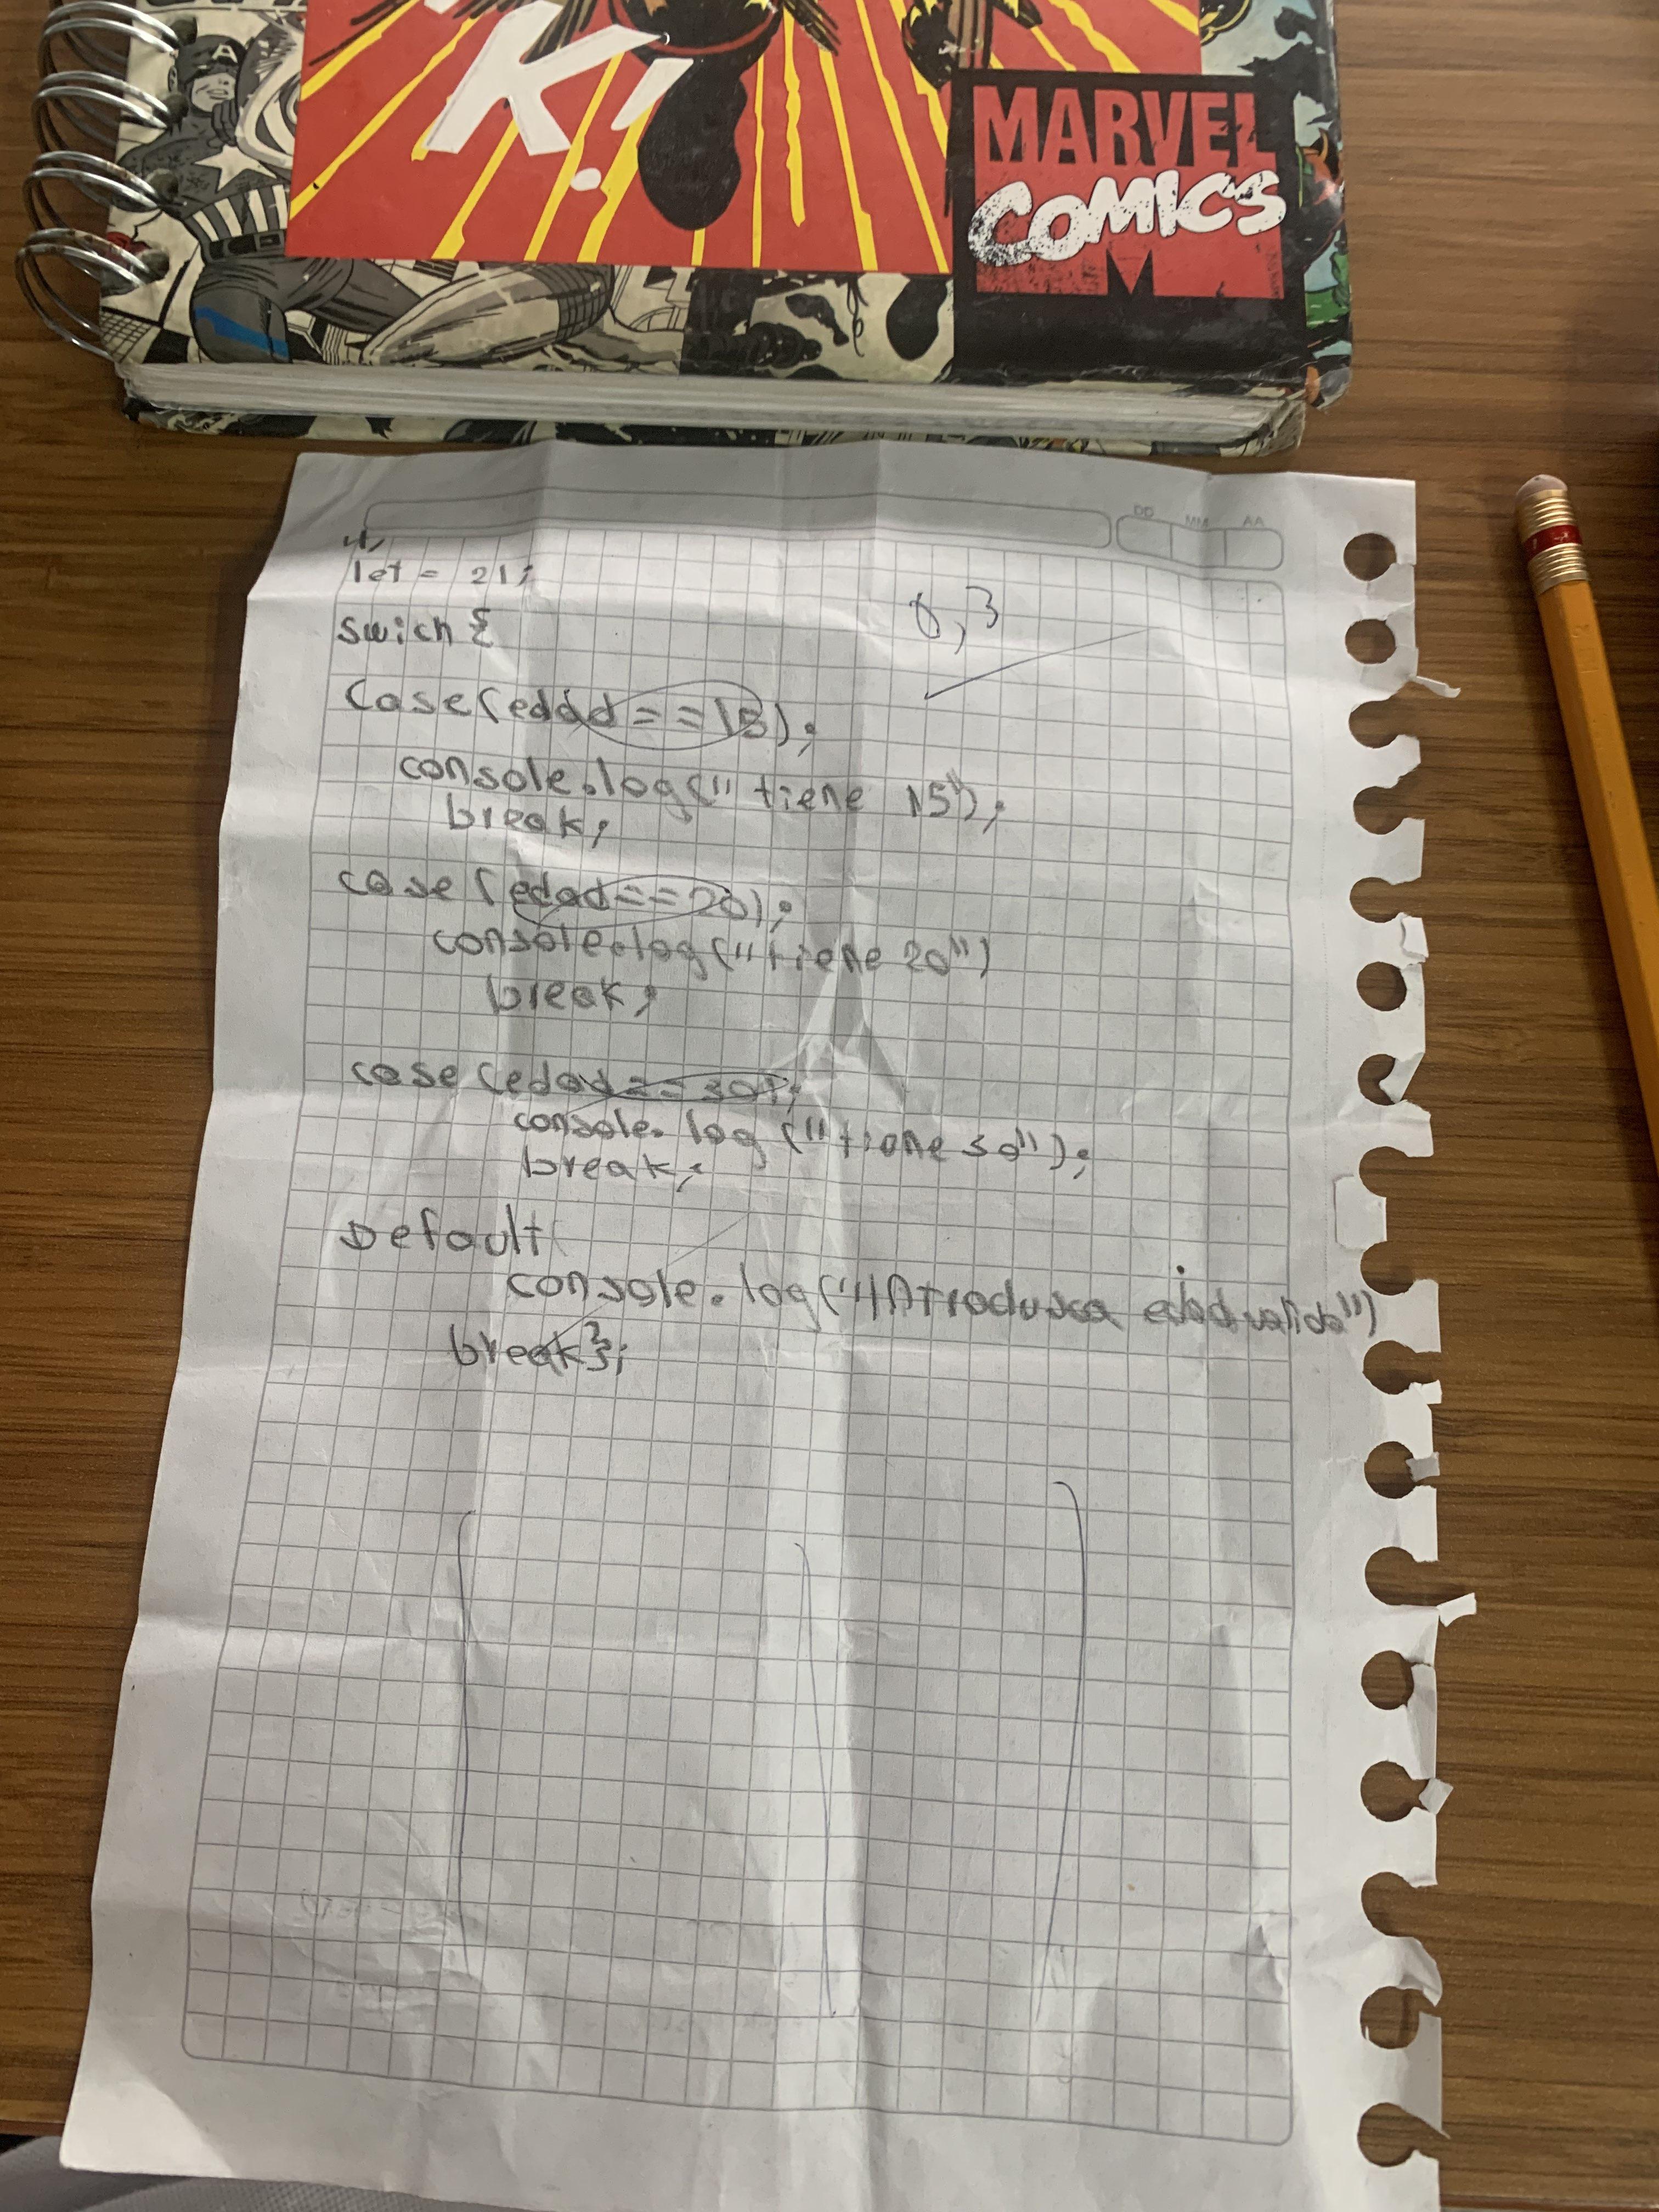 K!
MARVEL
COMICS
DD MM AA
4,
let = 21;
0,3
swich {
case (edad == 15);
console.log("tiene 15");
break;
case (edad == 20);
console.log("tiene 20")
break;
case (edad == 30);
console.log("tiene 30");
break;
Default
console.log("Introdusca edad valida")
break};